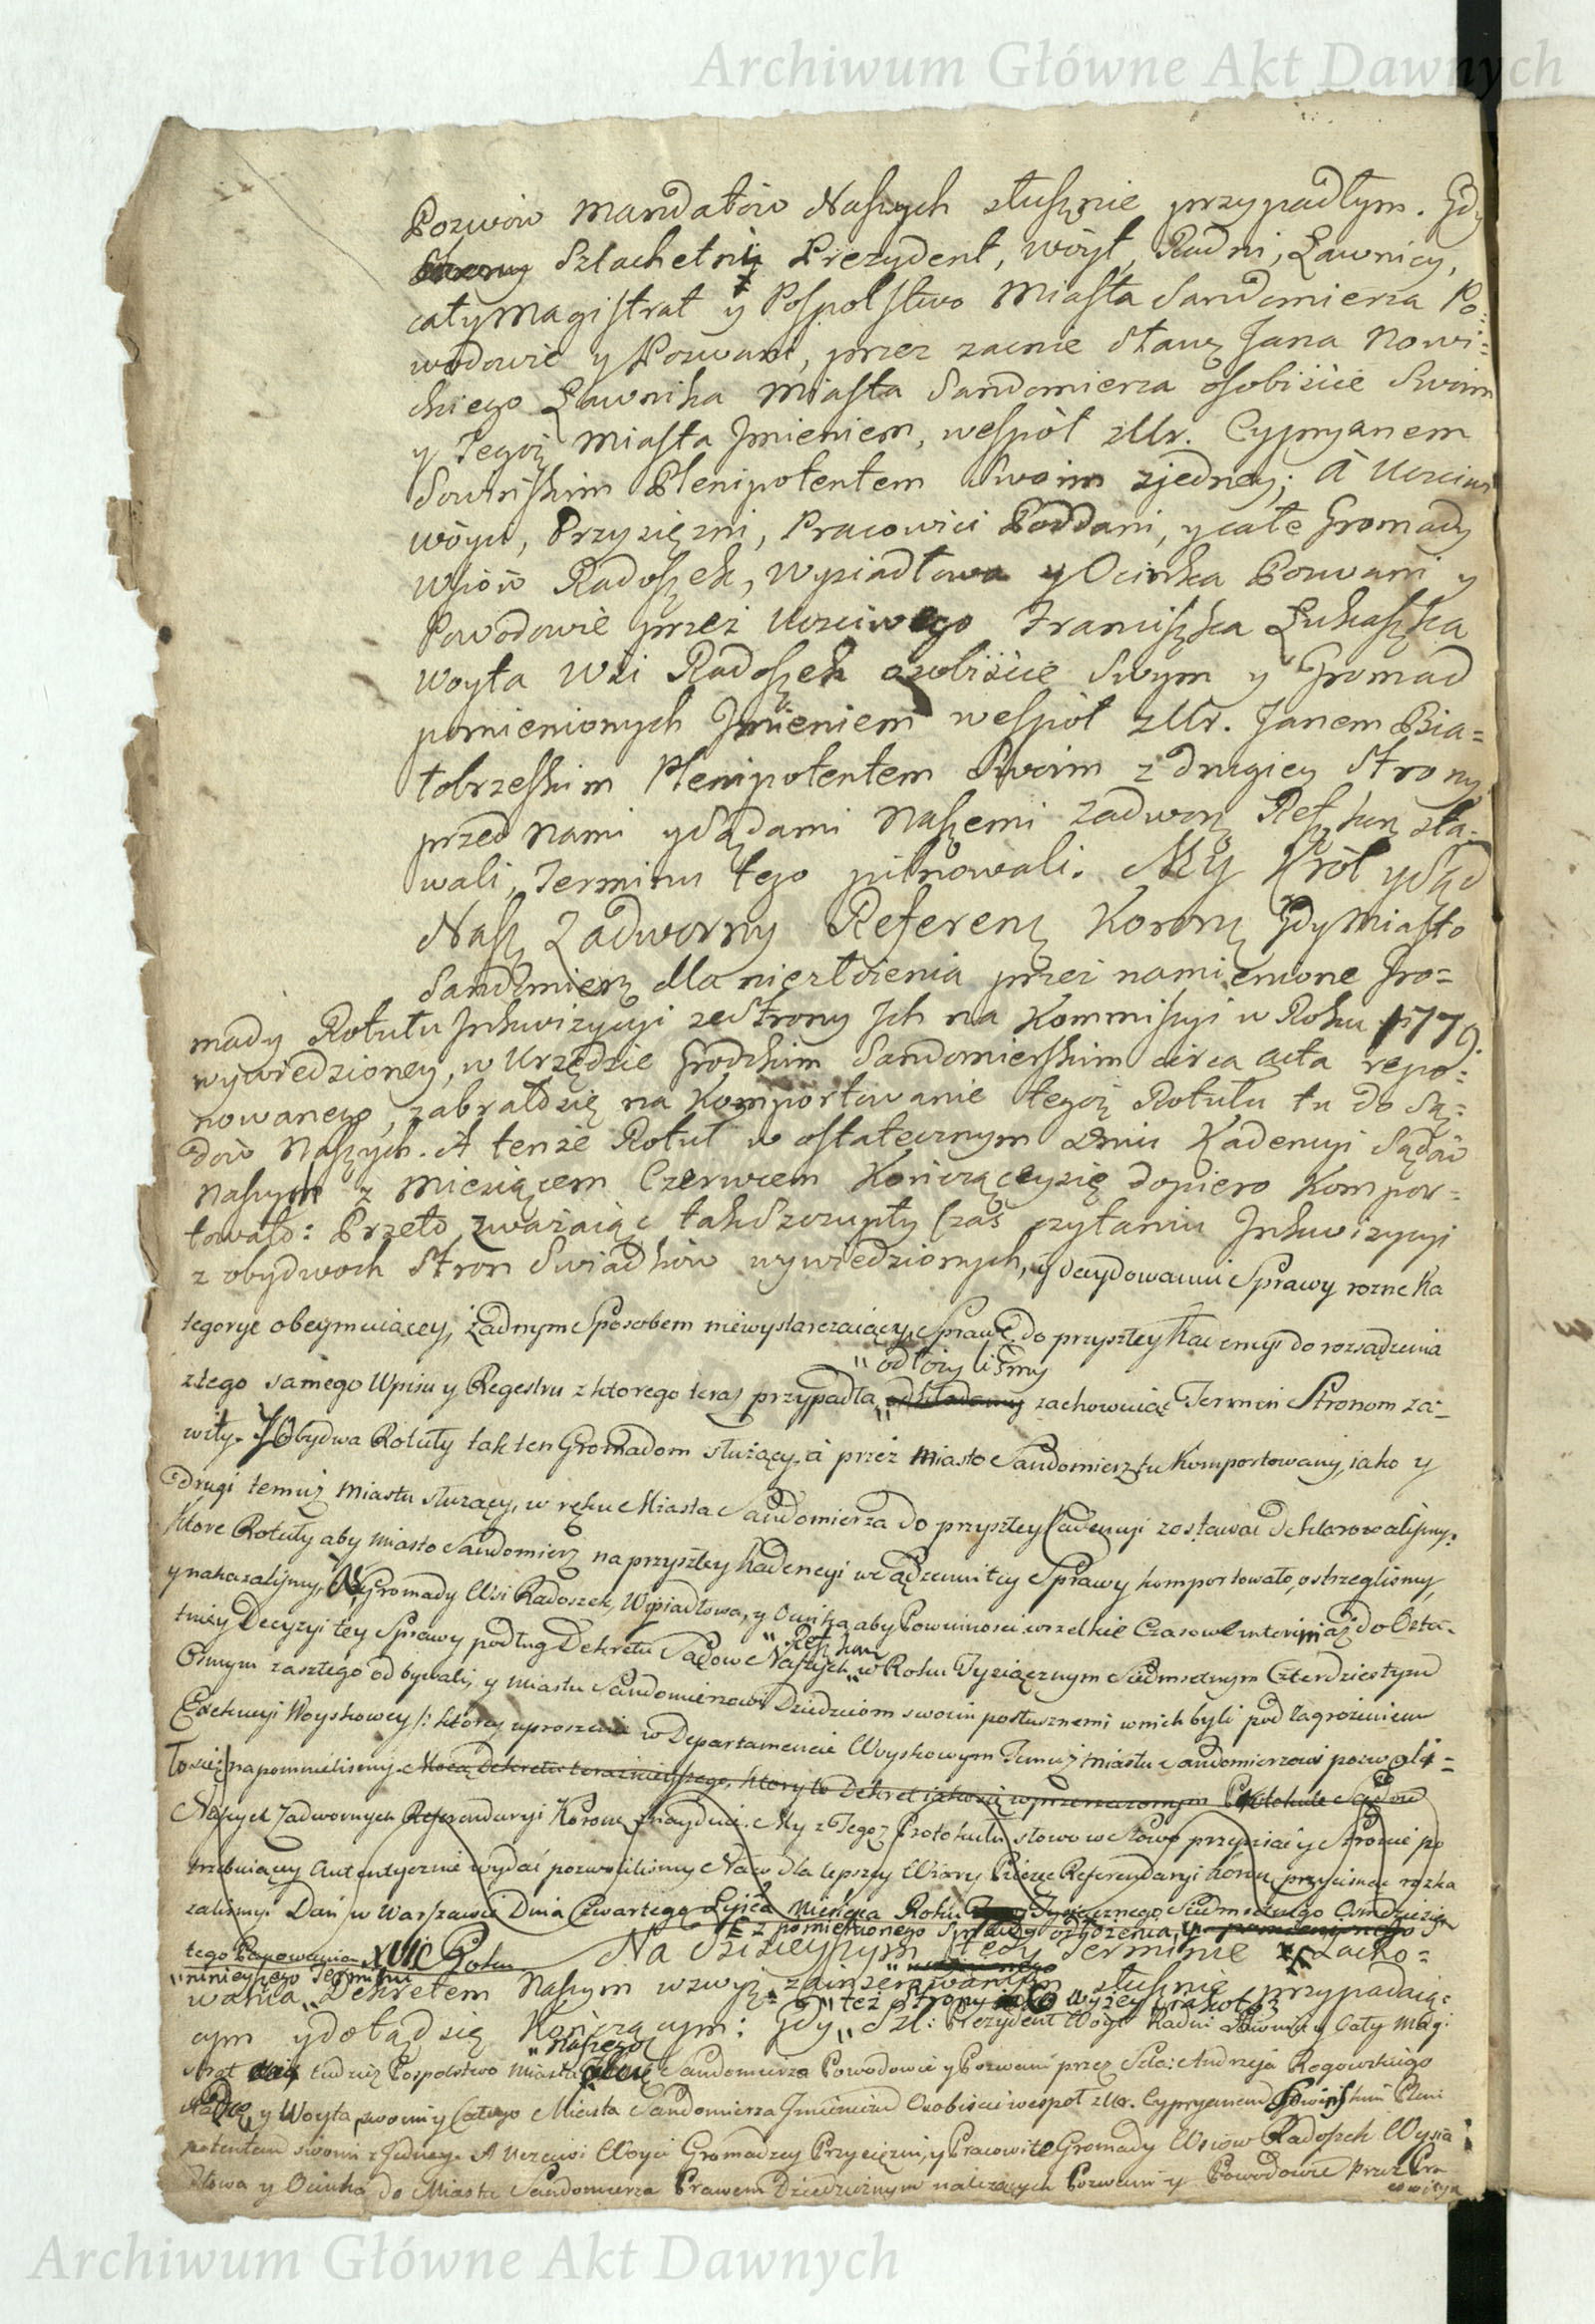 Archiwum Główne Akt Dawnych
Pozwów Mandatów Naszych słusznie przypadłym. Gdy
Strony Szlachetni Prezydent, Wóyt, Radni, Ławnicy,
cały Magistrat y Pospolstwo Miasta Sandomierza Po=
wodowie y Pozwani, przez zacnie Sław: Jana Nowi=
ckiego Ławnika Miasta Sandomierza osobiście Swoim
y Tegoż Miasta Jmieniem, wespół z Ur. Cypryanem
Sowińskim Plenipotentem Swoim z jedney; A Uczciwi
Wóyci, Przysiężni, Pracowici Poddani, y całe Gromady
Wsiów Radoszek, Wysiadłowa y Ocinka Pozwani y
Powodowie przez Uczciwego Franciszka Łukaszka
Woyta Wsi Radoszek osobiście Swym y Gromad
pomienionych Jmieniem wespół z Ur. Janem Bia=
łobrzeskim Plenipotentem Swoim z drugiey Strony
przed Nami y Sądami Naszemi Zadwor: Ref: Kor: sta=
wali, Terminu tego pilnowali. My Król y Sąd
Nasz Zadworny Referen: Koron: Gdy Miasto
Sandomierz dla niezłożenia przez namienione Gro=
mady Rotułu Jnkwizycyi ze Strony Jch na Kommissyi w Roku 1779.
wywiedzioney, w Urzędzie Grodzkim Sandomierskim circa acta repo=
nowanego, zabrało się na Komportowanie tegoż Rotułu tu do Są=
dów Naszych. A tenże Rotuł w ostatecznym dniu Kadencyi Sądów
Naszych z Miesiącem Czerwcem Kończącey się dopiero Kompor=
towało: Przeto zważaiąc tak Szczupły Czas czytaniu Jnkwizycyi
z obydwoch Stron Swiadków wywiedzionych, y decydowaniu Sprawy rozne Ka
tegorye obeymuiącey, żadnym Sposobem niewystarczaiący, Sprawę do przyszłey Kadencyi do rozsądzenia
" odłożyliśmy
z tego samego Wpisu y Regestru z ktorego teraz przypadła, odkładamy zachowuiąc Termin Stronom za=
wity. Y Obydwa Rotuły tak ten Gromadom służący, a przez Miasto Sandomierz tu Komportowany, iako y
drugi temuż Miastu służący, w ręku Miasta Sandomierza do przyszłey Kadencyi zostawać deklarowaliśmy.
Ktore Rotuły aby Miasto Sandomierz na przyszłey Kadencyi w Sądzeniu tey Sprawy komportowało, ostrzegliśmy
y nakazaliśmy, Gromady Wsi Radoszek, Wysiadłowa, y Ocinka, aby Powinnosci wszelkie Czasowe interim aż do Osta=
tniey Decyzyi tey Sprawy podług Dekretu Sądow Naszych w Roku Tysiącznym Siedmsetnym Czterdziestym
" Ref: Kor:
Osmym zaszłego odbywali, y Miastu Sandomierzowi Dziedzicom swoim posłusznemi w nich byli pod zagrożeniem
Exekucyi Woyskowey /: ktorey uproszenie w Departamencie Woyskowym Temuż Miastu Sandomierzowi pozwoli=
liśmy napomnieliśmy. Mocą Dekretu teraznieyszego, ktory to Dekret iako się w przerzeczonym Protokule Sądow
Naszych Zadwornych Referendaryi Koron: znayduie. My z Tegoż Protokułu słowo w słowo przepisać y Stronie po
trzebuiącey Autentycznie wydać pozwoliliśmy Na co dla lepszey Wiary Pieczęć Referendaryi Koron: przycisnąć rozka
zaliśmy. Dan w Warszawie Dnia Czwartego Lipca Miesiąca Roku Tysiącznego Siedmsetnego Osmdziesią
tego Panowania XVII Roku
z pomienionego Sprawy odłożenia, y
Na dzisieyszym tedy Terminie z Zacho=
" ninieyszego Terminu
wania " Dekretem Naszym wzwyż zainserowanym słusznie przypadaią=
" też Strony iako wyżey
cym y dotąd się Kończącym: Gdy " Szl: Prezydent Woyt Radni Ławnicy Cały Mag:
" Naszego
strat tudzież Pospolstwo Miasta Sandomierza Powodowie y Pozwani przez Szla: Andrzeja Rogowskiego
Radcę, y Woyta, swoim y Całego Miasta Sandomierza Jmieniem Osobiscie wespoł z Ur. Cypryanem Sowińskim Pleni
potentem swoim z Jedney. A Uczciwi Woyci Gromadzcy Przysiężni, y Pracowite Gromady Wsiow Radoszek Wysia
dłowa y Ocinka do Miasta Sandomierza Prawem Dziedzicznym należących Pozwani y Powodowie przez Pra
cowitego
Archiwum Główne Akt Dawnych